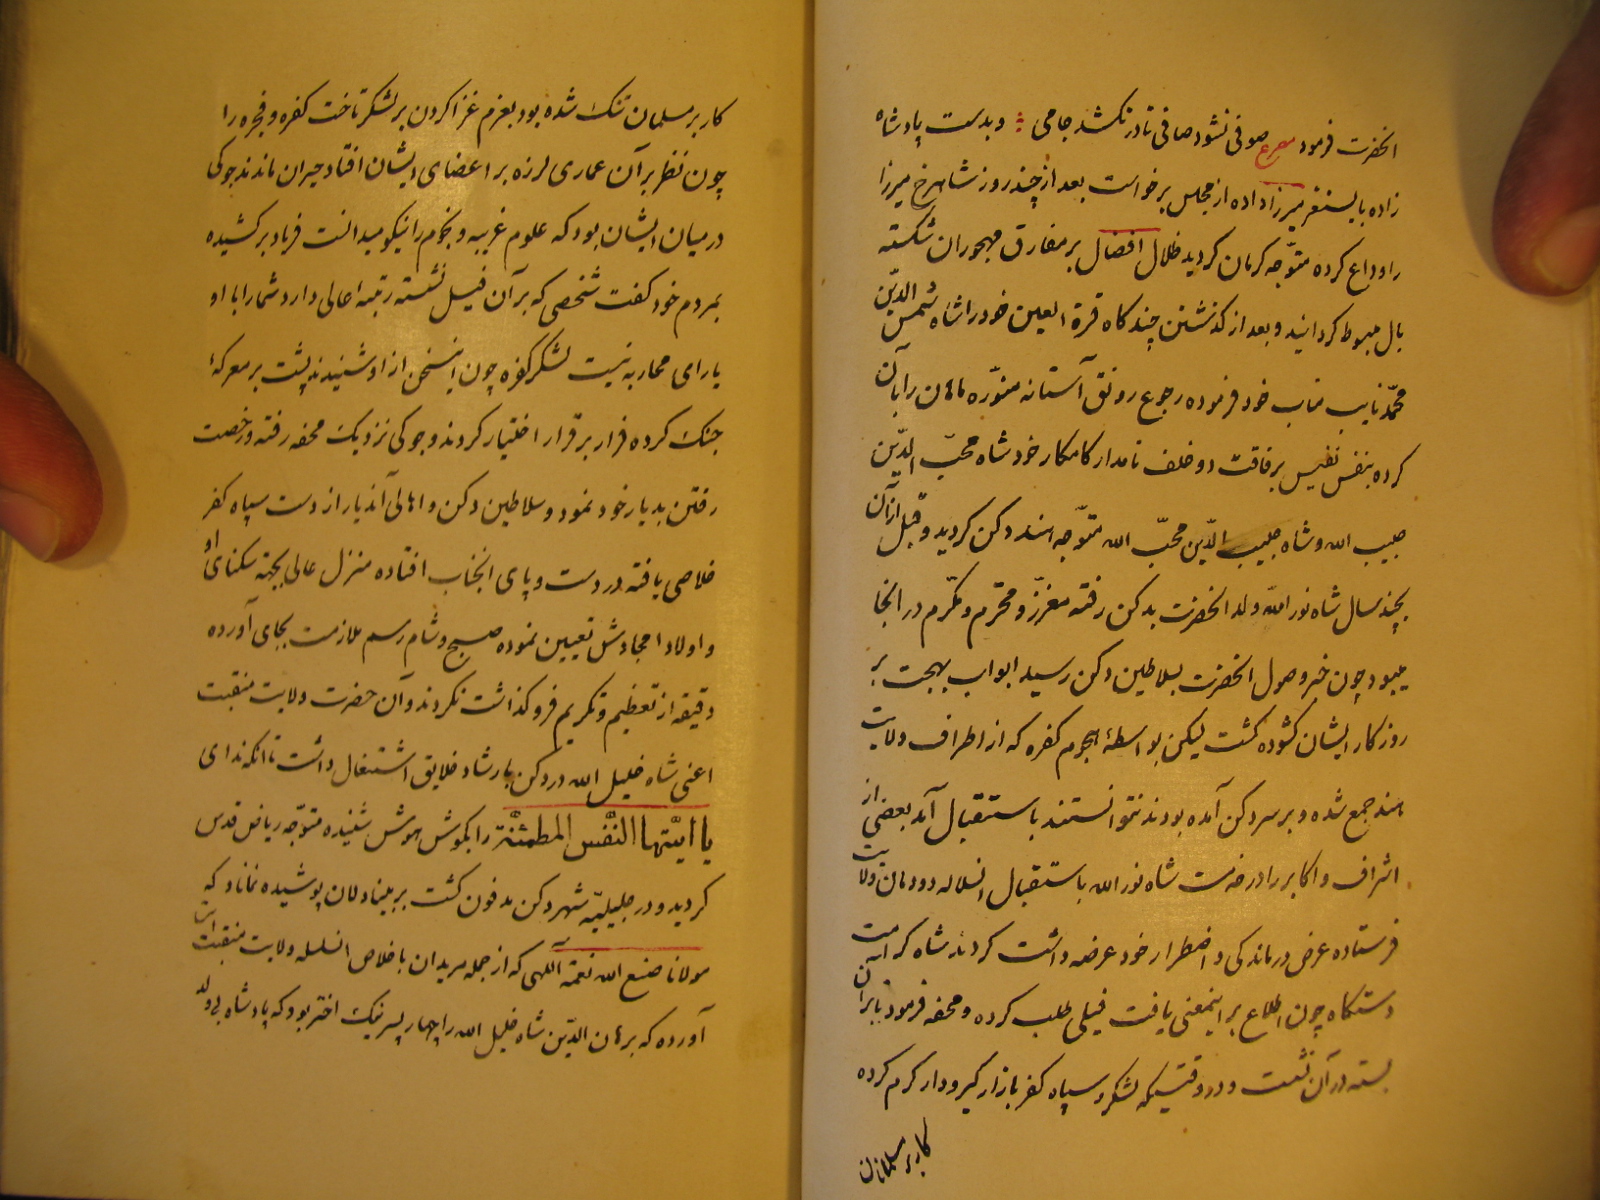 انحضرت فرمود مصرع صوفی نشود صافی تا درنکشد جامی و بدست پادشاه
زاده بایسنغر میرزا داده از مجلس برخواست بعد از چند روز شاهرخ میرزا
را وداع کرده متوّجه کرمان کردید ظلال افضال بر مفارق مهجوران شکسته
بال مبسوط کردانید و بعد از کذشتن چند کاه قرة العین خود را شاه شمس الدّین
محمّد نایب مناب خود فرموده رجوع رونق آستانه منوّره ماهان را بآن
کرده بنفس نفیس برفاقت دو خلف نامدار کامکار خود شاه محبّ الدّین
حبیب الله و شاه حبیب الدّین محبّ الله متوّجه هند دکن کردید و قبل ازان
بچند سال شاه نور الله ولد انحضرت بدکن رفته معزّز و محترم و مکّرم در انجا
میبود چون خبر وصول انحضرت بسلاطین دکن رسید ابواب بهجت بر
روزکار ایشان کشوده کشت لیکن بواسطهٔ هجوم کفره که از اطراف ولایت
هند جمع شده و بر سر دکن آمده بودند نتوانستند باستقبال آمد بعضی از
اشراف و اکابر را در خدمت شاه نور الله باستقبال انسلاله دودمان ولایت
فرستاده عرض درماندکی و اضطرار خود عرضه داشت کردند شاه کرامت
دستکاه چون اطلاع بر اینمعنی یافت فیلی طلب کرده و محفه فرمود تا بران
بسته در آن نشست و در وقتیکه لشکر و سپاه کفر بازار کیر و دار کرم کرده
کار بر مسلمانان
کار بر مسلمانان تنک شده بود بعزم غزا کردن بر لشکر تاخت کفره و فجره را
چون نظر بر آن عماری لرزه بر اعضای ایشان افتاد حیران ماندند جوکی
در میان ایشان بود که علوم غریبه و نجوم را نیکو میدانست فریاد برکشیده
بمردم خود کفت شخصی که بر آن فیل نشسته رتبه اعالی دارد شما را با او
یارای محاربه نیست لشکر کفره چون اینسخن از او شنیدند پشت بر معرکهٔ
جنک کرده فرار بر قرار اختیار کردند و جوکی نزدیک محفه رفته و رخصت
رفتن بدیار خود نمود و سلاطین دکن و اهالی آندیار از دست سپاه کفر
خلاصی یافته در دست و پای انجناب افتاده منزل عالی بجهته سکنای او
و اولاد امجادش تعیین نموده صبح و شام رسم ملازمت بجای آورده
دقیقه از تعظیم و تکریم فروکذاشت نکردند و آن حضرت ولایت منقبت
اعنی شاه خلیل الله در دکن بارشاد خلایق اشتغال داشت تا انکه ندای
یا ایّتها النّفس المطمئنّة را بکوش هوش شنیده متوّجه ریاض قدس
کردید و در خلیلیّه شهر دکن مدفون کشت بر بینا دلان پوشیده نماند که
مولانا صنع الله نعمة اللّهی که از جمله مریدان با خلاص انسلسله ولایت منقبت است
آورده که برهان الدّین شاه خلیل الله را چهار پسر نیک اختر بود که پادشاه بی ولد